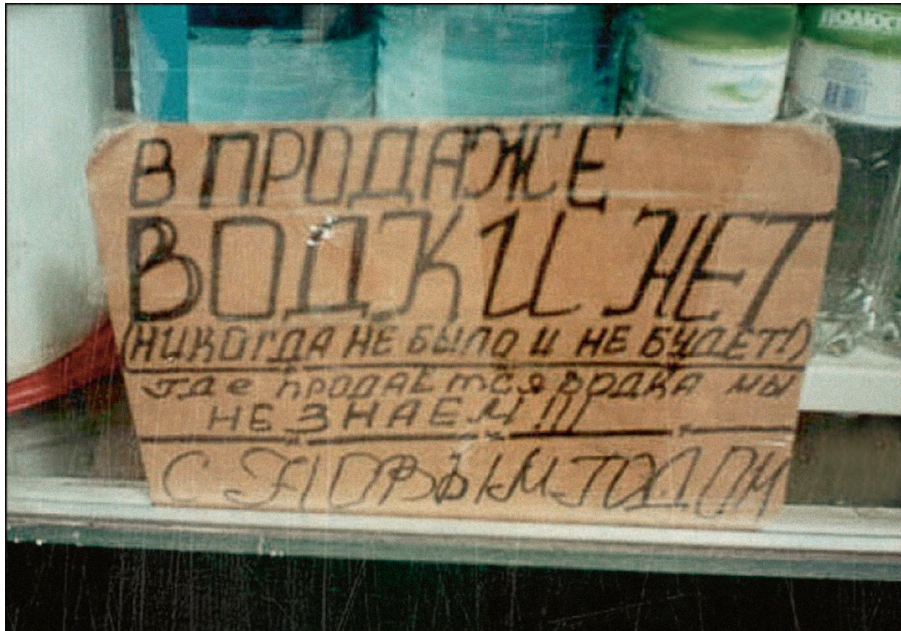 ПОЛЮС
В ПРОДАЖЕ
ВОДКИ НЕТ
(НИКОГДА НЕ БЫЛО И НЕ БУДЕТ!)
где продаётся водка мы
НЕ ЗНАЕМ!!!
С НОВЫМ ГОДОМ